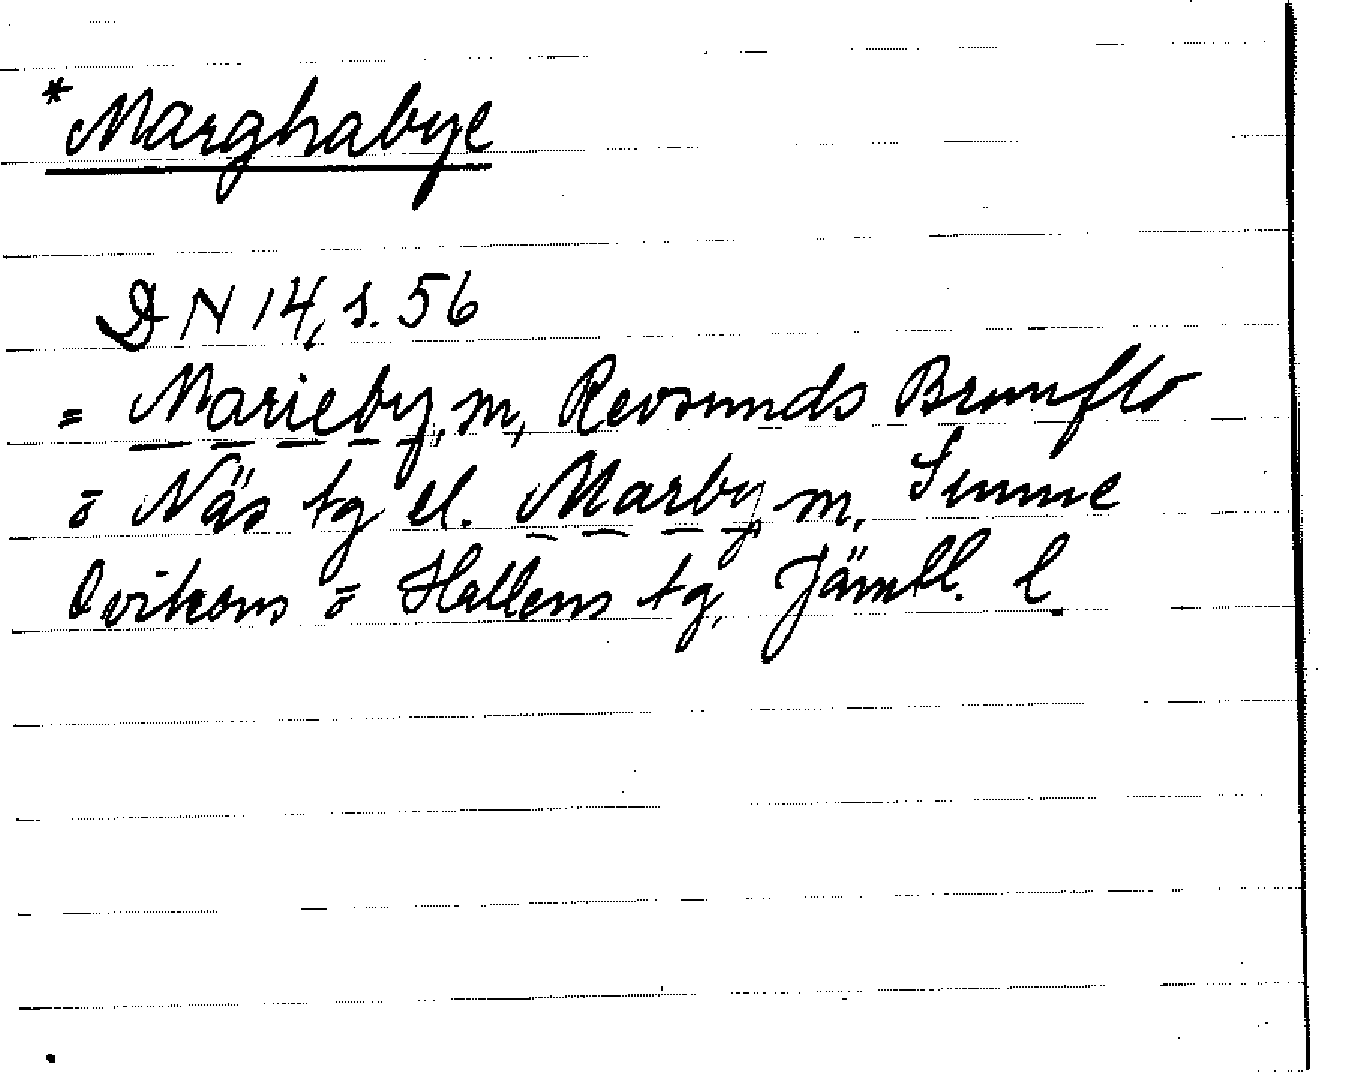 *Marghabye
DN 14, s. 56
= Marieby, m, Revsunds Brunflo
o Näs tg el. Marby m, Sunne
Ovikens o Hallens tg, Jämtl. l